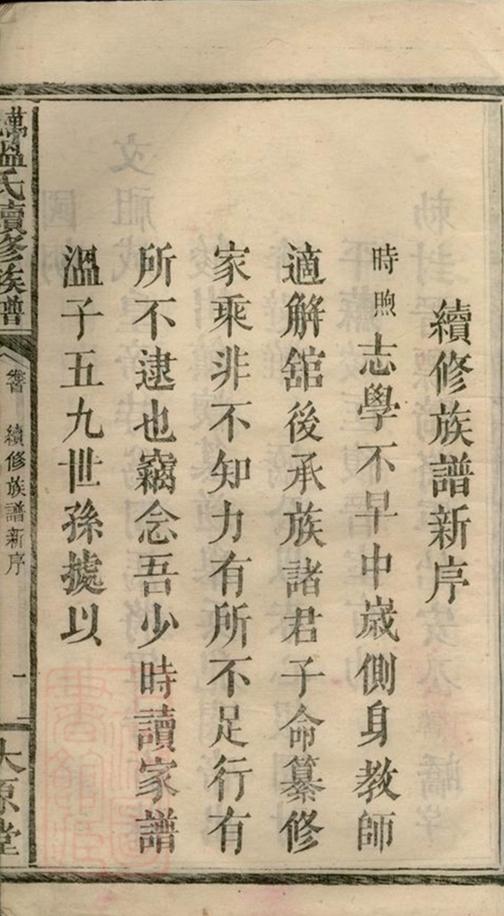 續修族譜新序
時煦志學不早中歲側身教師
適解舘後承族諸君子命纂修
家乘非不知力有所不足行有
所不逮也竊念吾少時讀家譜
溫子五九世孫據以
溈溫氏續修族譜
卷首 續修族譜新序 一
太原堂